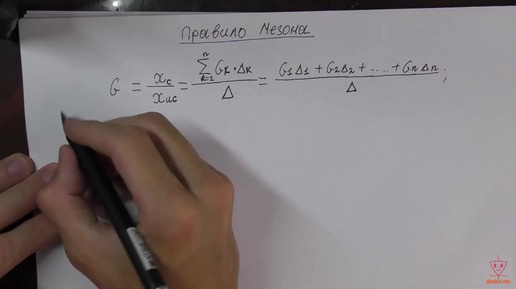 Правило Мезона
G = x_c / x_ис = ∑_{k=1}^{n} G_k · Δ_k / Δ = G_1 Δ_1 + G_2 Δ_2 + .... + G_n Δ_n / Δ ;